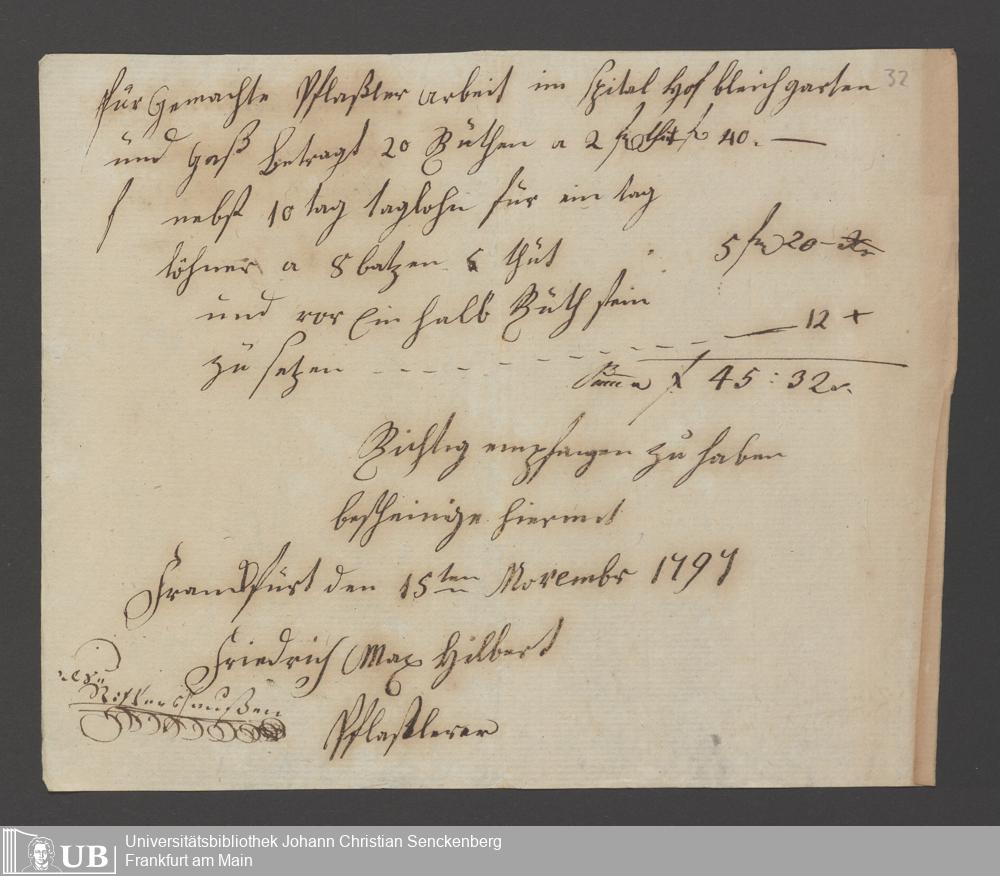 für Gemachte Pflaster arbeit im Spital Hof bleichgarten 32
und Gaß betragt 20 Ruthen a 2 f thut f 40. —
nebst 10 tag taglohn für ein tag
löhner a 8 batzen thut 5 f 20 - xr
und vor Ein halb Ruth stein 12 x
zu setzen - - - - - - - -
Suma f 45 : 32 x.
Richtig empfangen zu haben
bescheinige hiermit
Franckfurt den 15ten Novembr 1797
Friedrich Max Hilbert
Pflasterer
Universitätsbibliothek Johann Christian Senckenberg
UB Frankfurt am Main